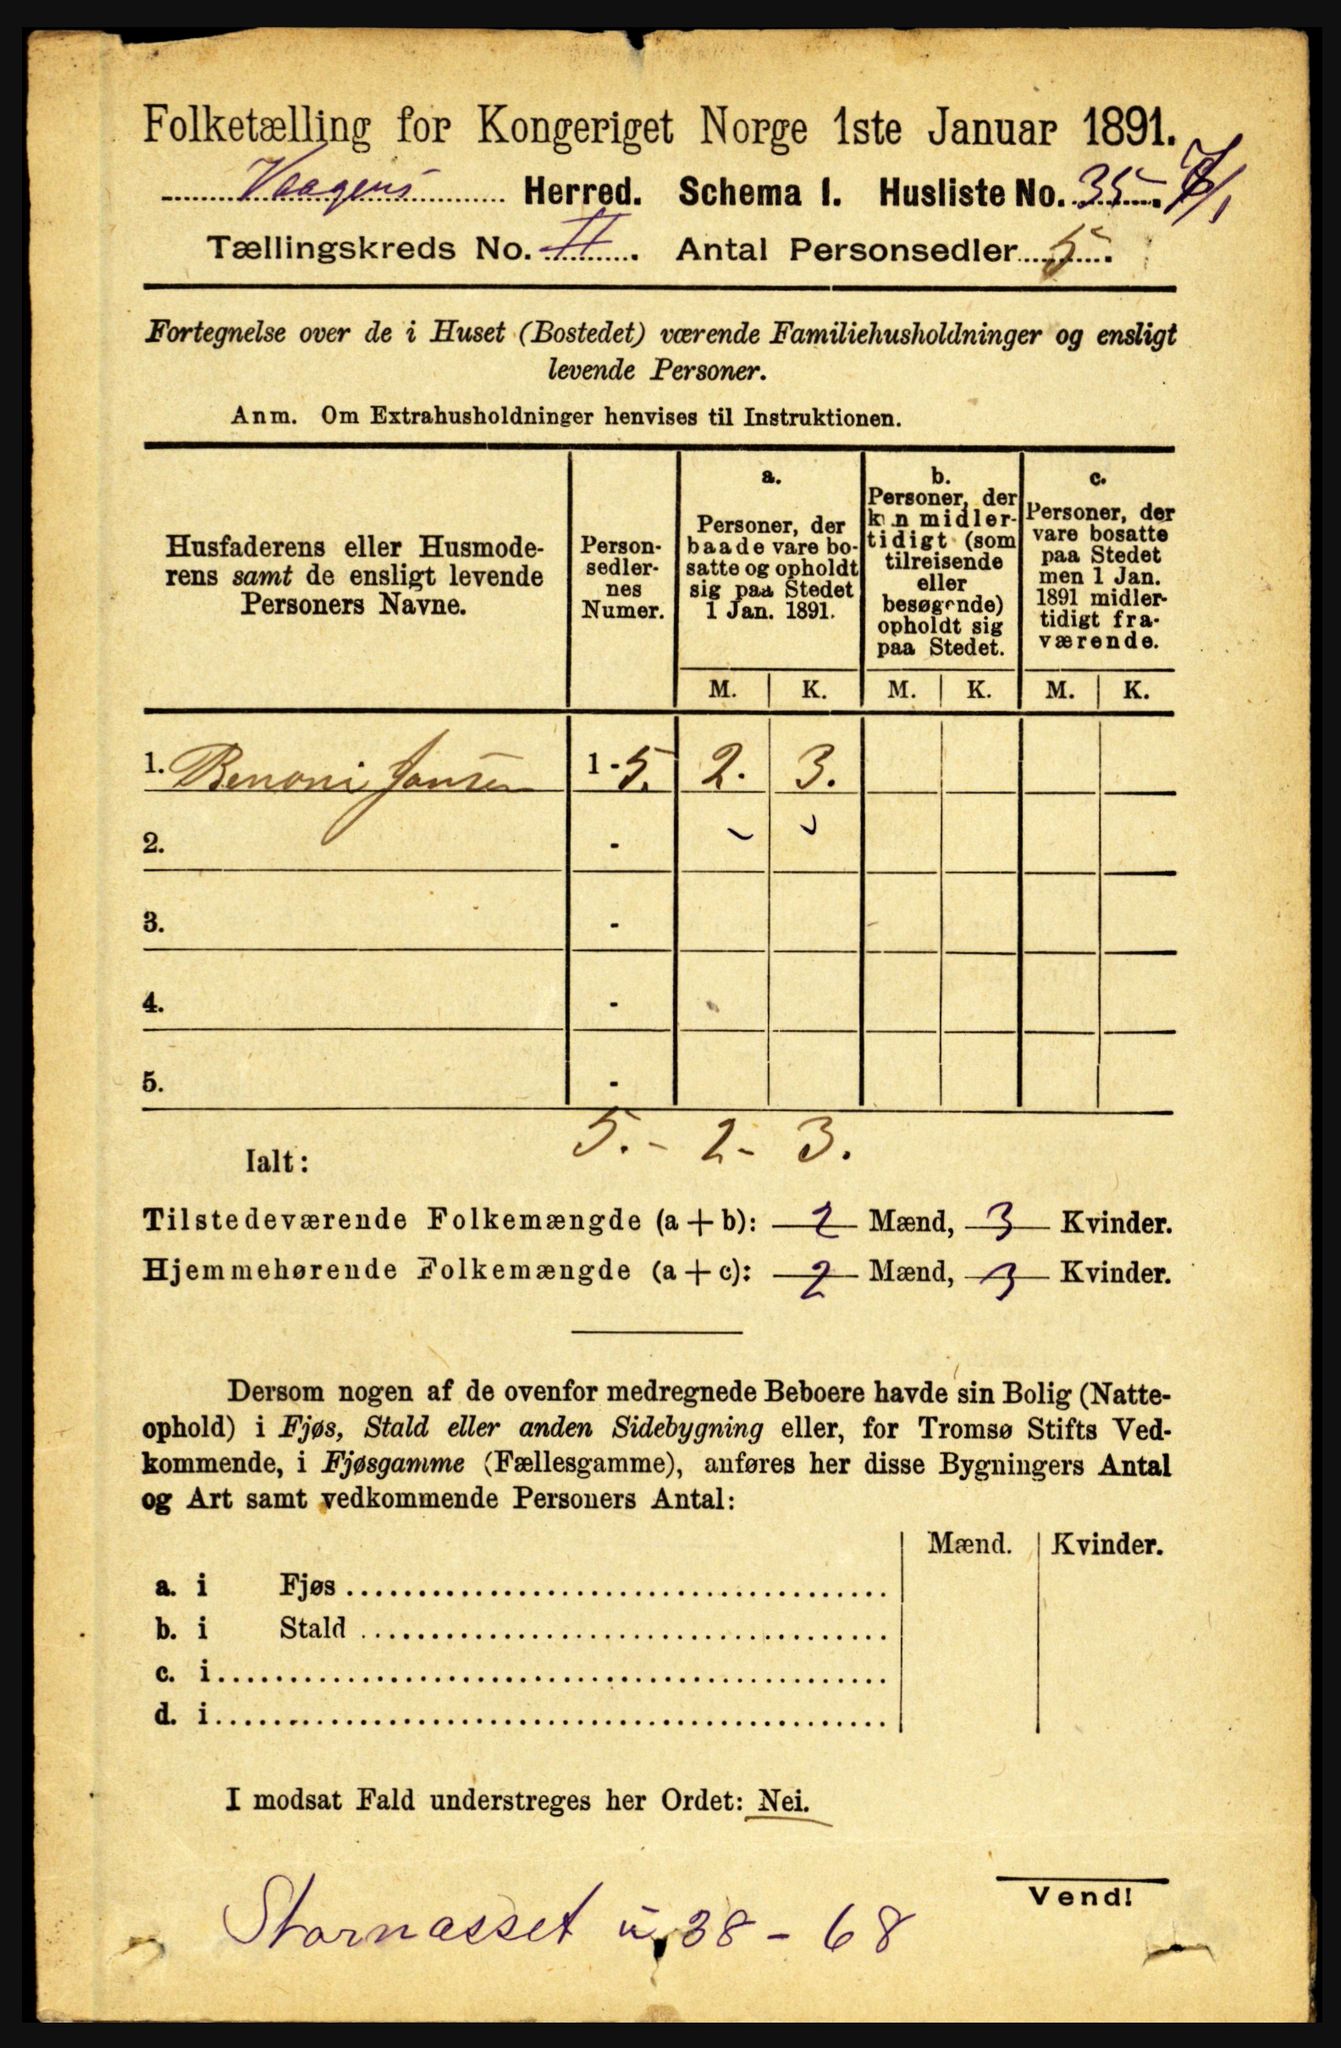 Folketælling for Kongeriget Norge 1ste Januar 1891.
Vaagens Herred. Schema I. Husliste No. 35. 7/1
Tællingskreds No. II. Antal Personsedler 5.
Fortegnelse over de i Huset (Bostedet) værende Familiehusholdninger og ensligt
levende Personer.
Anm. Om Extrahusholdninger henvises til Instruktionen.
Husfaderens eller Husmode-
rens samt de ensligt levende
Personers Navne.
Person-
sedler-
nes
Numer.
a.
Personer, der
baade vare bo-
satte og opholdt
sig paa Stedet
1 Jan. 1891.
b.
Personer, der
kun midler-
tidigt (som
tilreisende
eller
besøgende)
opholdt sig
paa Stedet.
c.
Personer, der
vare bosatte
paa Stedet
men 1 Jan.
1891 midler-
tidigt fra-
værende.
M. K. M. K. M. K.
1. Benoni Jansen 1-5. 2. 3.
2. -
3. -
4. -
5. -
5. - 2 - 3.
Ialt:
Tilstedeværende Folkemængde (a + b): 2 Mænd, 3 Kvinder.
Hjemmehørende Folkemængde (a + c): 2 Mænd, 3 Kvinder.
Dersom nogen af de ovenfor medregnede Beboere havde sin Bolig (Natte-
ophold) i Fjøs, Stald eller anden Sidebygning eller, for Tromsø Stifts Ved-
kommende, i Fjøsgamme (Fællesgamme), anføres her disse Bygningers Antal
og Art samt vedkommende Personers Antal:
Mænd. Kvinder.
a. i Fjøs
b. i Stald
c. i
d. i
I modsat Fald understreges her Ordet: Nei.
Vend!
38 - 68